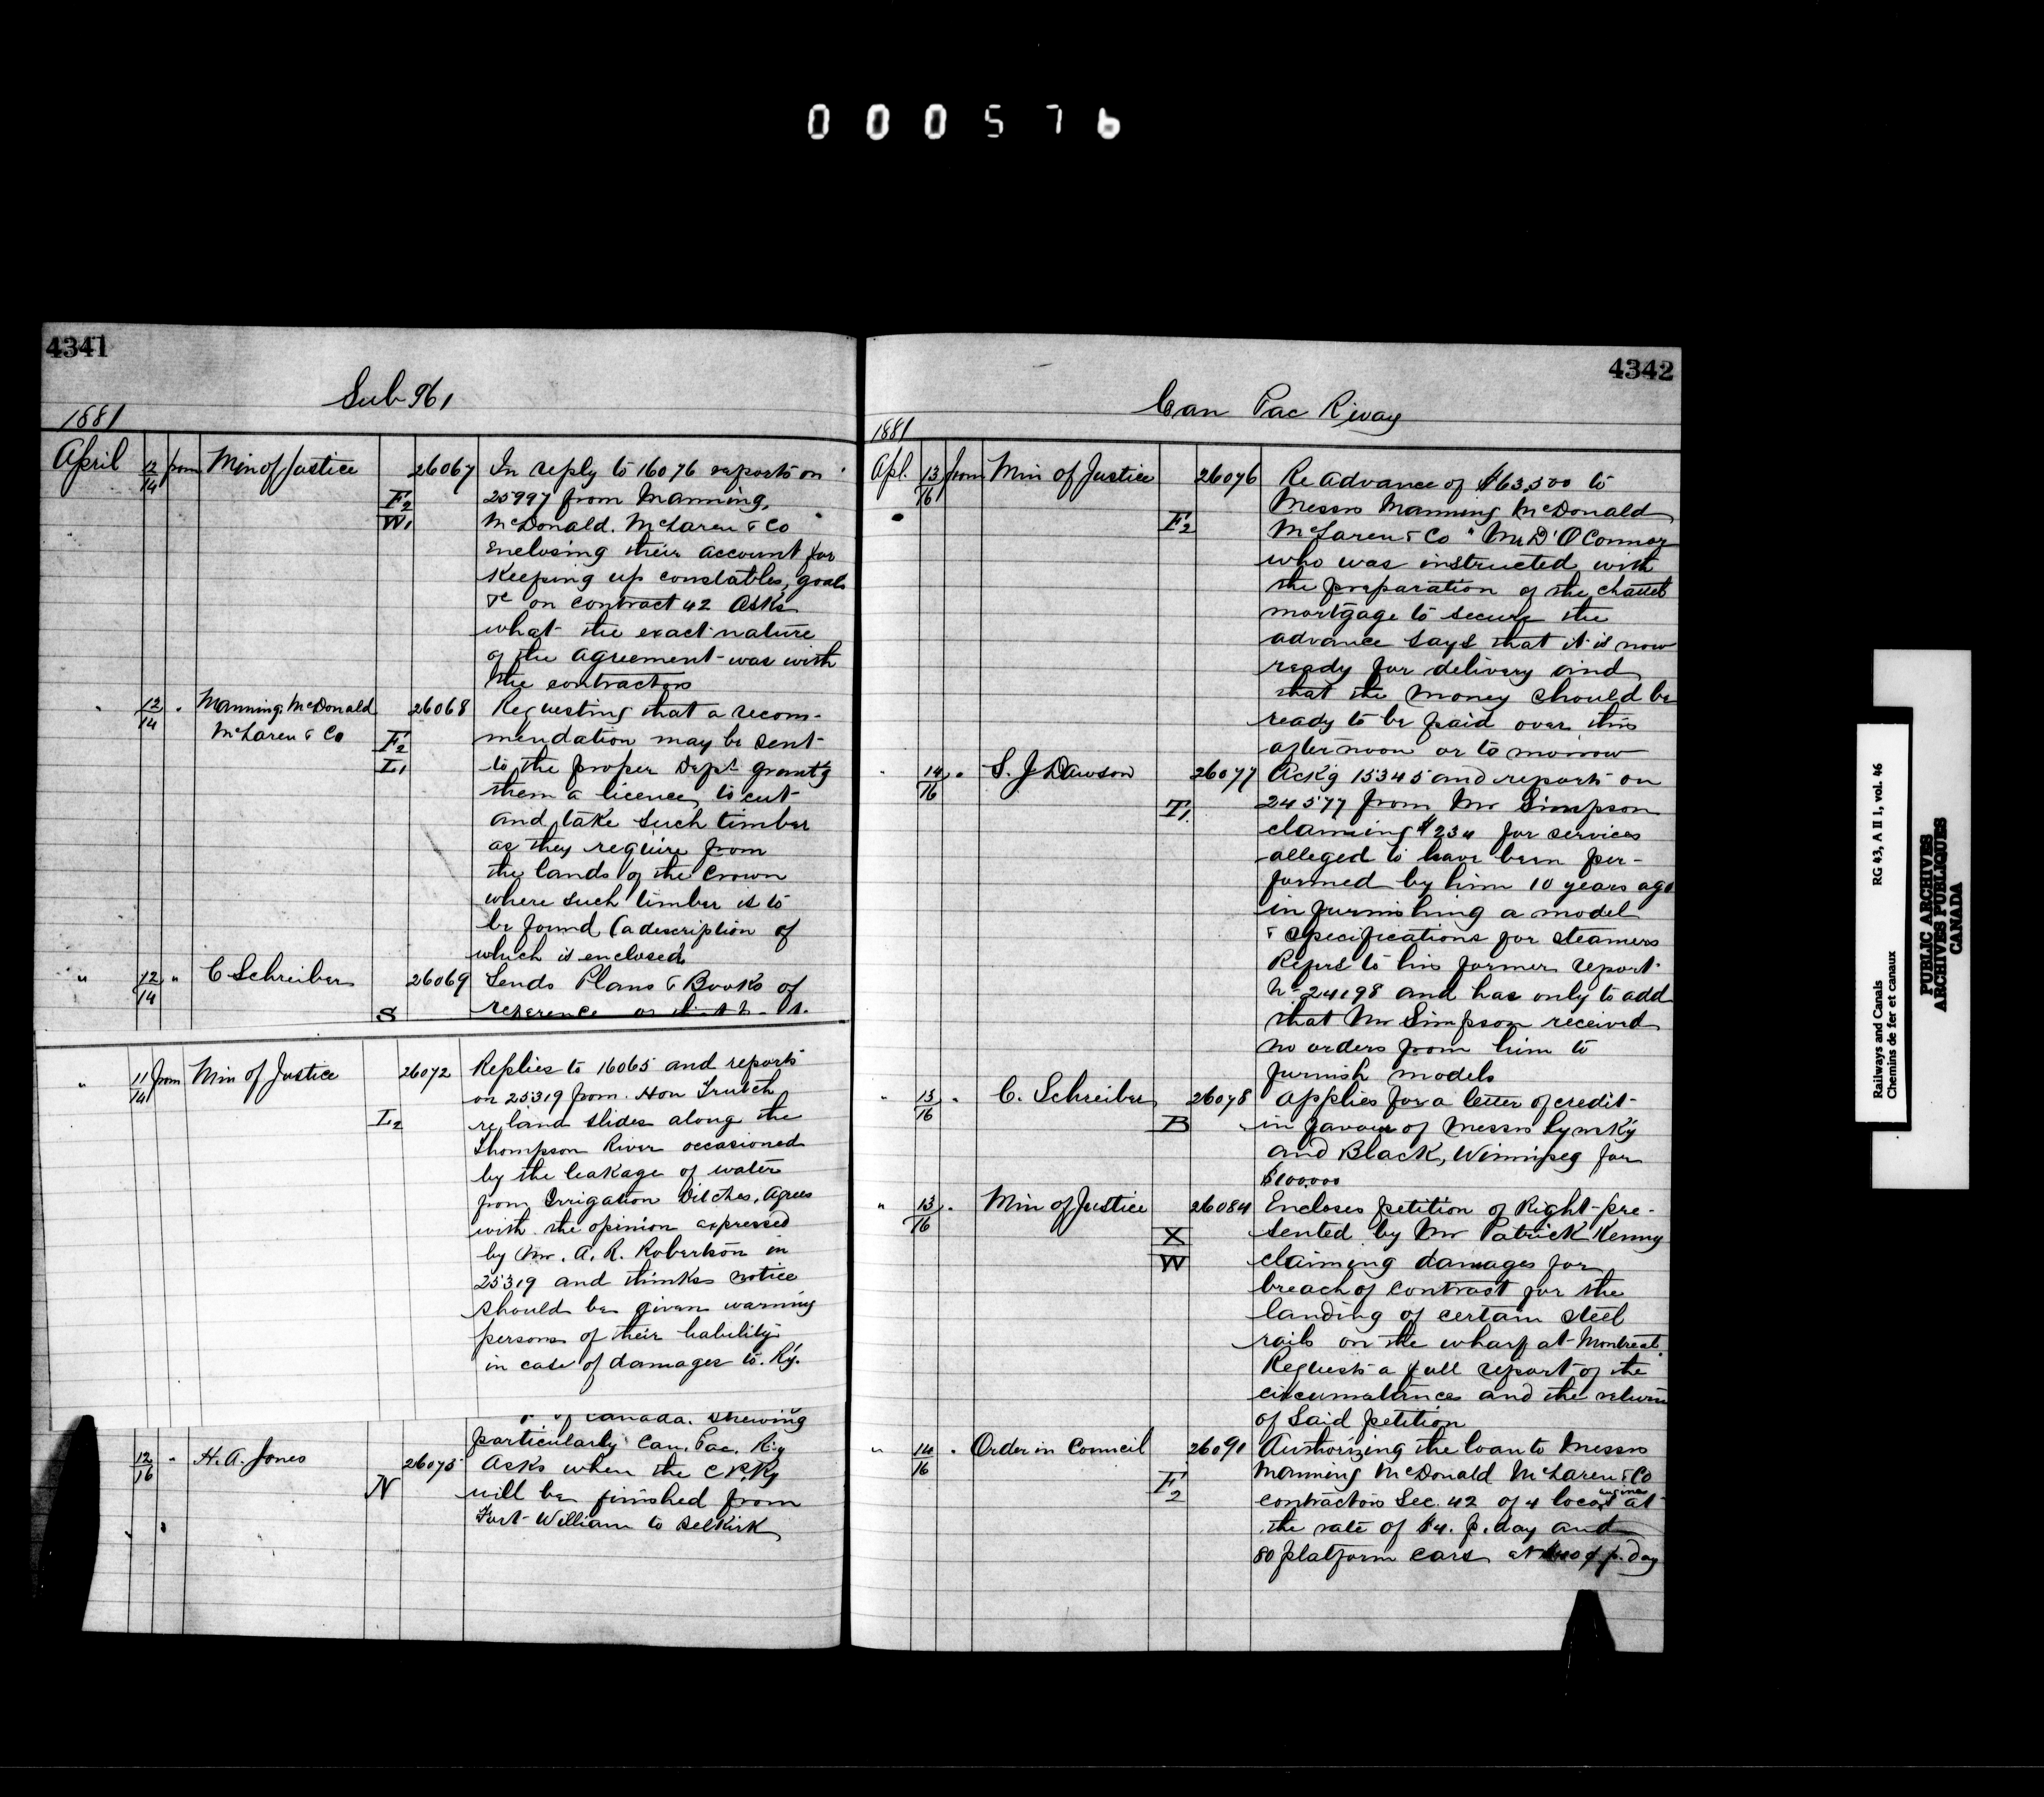 000576
4341
Sub 961
1881
April 12/14 from Min of Justice 26067 In reply to 16076 reports on
F2 25997 from Manning,
W1 McDonald. McLaren & Co
Enclosing their account for
Keeping up constables, goals
&c on contract 42 Asks
what the exact nature
of the agreement was with
the contractors
" 12/14 " Manning McDonald 26068 Requesting that a recom-
McLaren & Co F2 mendation may be sent
L1 to the proper Dept grant'g
them a licence to cut
and take such timber
as they require from
the lands of the Crown
where such timber is to
be found (a description of
which is enclosed
" 12/14 " C Schreiber 26069 Sends Plans & Books of
S reference
" 11/14 from Min of Justice 26072 Replies to 16065 and reports
on 25319 from Hon Trutch
L2 re land slides along the
Thompson River occasioned
by the leakage of water
from Irrigation Ditches. Agrees
with the opinion expressed
by Mr. A. R. Robertson in
25319 and thinks notice
should be given warning
persons of their liability
in case of damages to Ry.
of Canada. Shewing
particularly Can. Pac. Ry
12/16 " H. A. Jones 26075 Asks when the C P Ry
N will be finished from
Fort William to Selkirk
4342
Can Pac Rway
1881
Apl. 13/16 from Min of Justice 26076 Re advance of $63,500 to
Messrs Manning McDonald
F2 McLaren & Co " Mr D' O'Connor
who was instructed with
the preparation of the chattel
mortgage to secure the
advance says that it is now
ready for delivery and
that the money should be
ready to be paid over this
afternoon or to morrow
" 14/16 " S. J Dawson 26077 Ack'g 15345 and reports on
T1. 24577 from Mr Simpson
claiming $234 for services
alleged to have been per-
formed by him 10 years ago
in furnishing a model
& specifications for steamers
Refers to his former report
No 24198 and has only to add
that Mr Simpson received
no orders from him to
furnish models
" 13/16 " C. Schreiber 26078 applies for a letter of credit
B in favour of Messrs Lynsky
and Black, Winnipeg for
$100,000
" 13/16 " Min of Justice 26084 Encloses petition of Right pre-
X sented by Mr Patrick Kenny
W claiming damages for
breach of contract for the
landing of certain steel
rails on the wharf at Montreal.
Requests a full report of the
circumstances and the return
of said petition
" 14/16 " Order in Council 26091 Authorizing the loan to Messrs
Manning McDonald McLaren & Co
F2 contractors Sec. 42 of 4 loco engines at
the rate of $4. p. day and
80 platform cars at 40¢ p. day
Railways and Canals RG 43, A II 1, vol. 46
Chemins de fer et canaux
PUBLIC ARCHIVES
ARCHIVES PUBLIQUES
CANADA